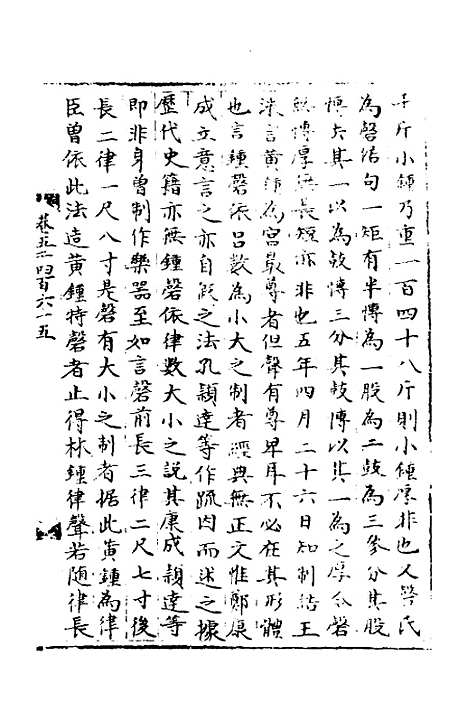 千斤小鍾乃重一百四十八斤則小鍾厚非也又磬氏
為磬倨句一矩有半博為一股為二鼓為三參分其股
博去其一以為鼓博三分其鼓博以其一為之厚今磬
無博厚無長短亦非也五年四月二十六日知制誥王
洙言黃鍾為宮最尊者但聲有尊卑耳不必在其形體
也言鍾磬依呂數為小大之制者經典無正文惟鄭康
成立意言之亦自假之法孔穎達等作疏因而述之據
歷代史籍亦無鍾磬依律數大小之說其康成穎達等
即非身曾制作樂器至如言磬前長三律二尺七寸後
長二律一尺八寸是磬有大小之制者據此黃鍾為律
臣曾依此法造黃鍾特磬者止得林鍾律聲若隨律長
卷五千四百六十五